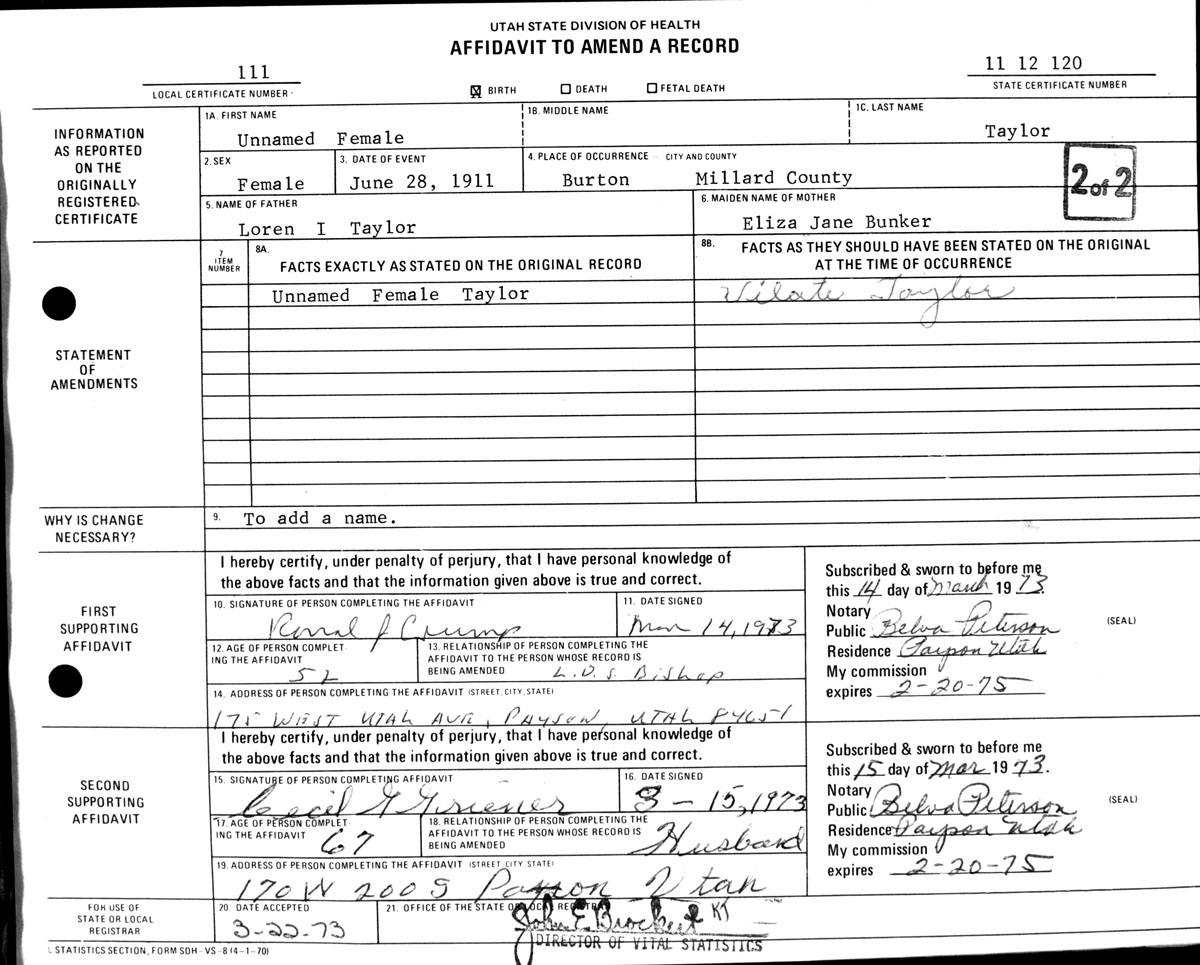 UTAH STATE DIVISION OF HEALTH
AFFIDAVIT TO AMEND A RECORD
111
LOCAL CERTIFICATE NUMBER
☒ BIRTH ☐ DEATH ☐ FETAL DEATH
11 12 120
STATE CERTIFICATE NUMBER
INFORMATION
AS REPORTED
ON THE
ORIGINALLY
REGISTERED
CERTIFICATE
1A. FIRST NAME
Unnamed Female
1B. MIDDLE NAME
1C. LAST NAME
Taylor
2. SEX
Female
3. DATE OF EVENT
June 28, 1911
4. PLACE OF OCCURRENCE CITY AND COUNTY
Burton Millard County
2 of 2
5. NAME OF FATHER
Loren I Taylor
6. MAIDEN NAME OF MOTHER
Eliza Jane Bunker
STATEMENT
OF
AMENDMENTS
7
ITEM
NUMBER
8A.
FACTS EXACTLY AS STATED ON THE ORIGINAL RECORD
8B. FACTS AS THEY SHOULD HAVE BEEN STATED ON THE ORIGINAL
AT THE TIME OF OCCURRENCE
Unnamed Female Taylor
Vilate Taylor
WHY IS CHANGE
NECESSARY?
9. To add a name.
FIRST
SUPPORTING
AFFIDAVIT
I hereby certify, under penalty of perjury, that I have personal knowledge of
the above facts and that the information given above is true and correct.
10. SIGNATURE OF PERSON COMPLETING THE AFFIDAVIT
J Crump
11. DATE SIGNED
Mar 14, 1973
12. AGE OF PERSON COMPLET-
ING THE AFFIDAVIT
52
13. RELATIONSHIP OF PERSON COMPLETING THE
AFFIDAVIT TO THE PERSON WHOSE RECORD IS
BEING AMENDED L.D.S. Bishop
14. ADDRESS OF PERSON COMPLETING THE AFFIDAVIT (STREET, CITY, STATE)
175 WEST UTAH AVE, PAYSON, UTAH 84651
Subscribed & sworn to before me
this 14 day of March 1973.
Notary
Public Belva Peterson
(SEAL)
Residence Payson Utah
My commission
expires 2-20-75
SECOND
SUPPORTING
AFFIDAVIT
I hereby certify, under penalty of perjury, that I have personal knowledge of
the above facts and that the information given above is true and correct.
15. SIGNATURE OF PERSON COMPLETING AFFIDAVIT
Cecil G
16. DATE SIGNED
3-15, 1973
17. AGE OF PERSON COMPLET-
ING THE AFFIDAVIT 67
18. RELATIONSHIP OF PERSON COMPLETING THE
AFFIDAVIT TO THE PERSON WHOSE RECORD IS
BEING AMENDED Husband
19. ADDRESS OF PERSON COMPLETING THE AFFIDAVIT (STREET, CITY, STATE)
170 W 200 S Payson Utah
Subscribed & sworn to before me
this 15 day of Mar 1973.
Notary
Public Belva Peterson
(SEAL)
Residence Payson Utah
My commission
expires 2-20-75
FOR USE OF
STATE OR LOCAL
REGISTRAR
20. DATE ACCEPTED
3-22-73
21. OFFICE OF THE STATE OR LOCAL REGISTRAR
John E Brockert KT
DIRECTOR OF VITAL STATISTICS
STATISTICS SECTION, FORM SDH-VS-8 (4-1-70)